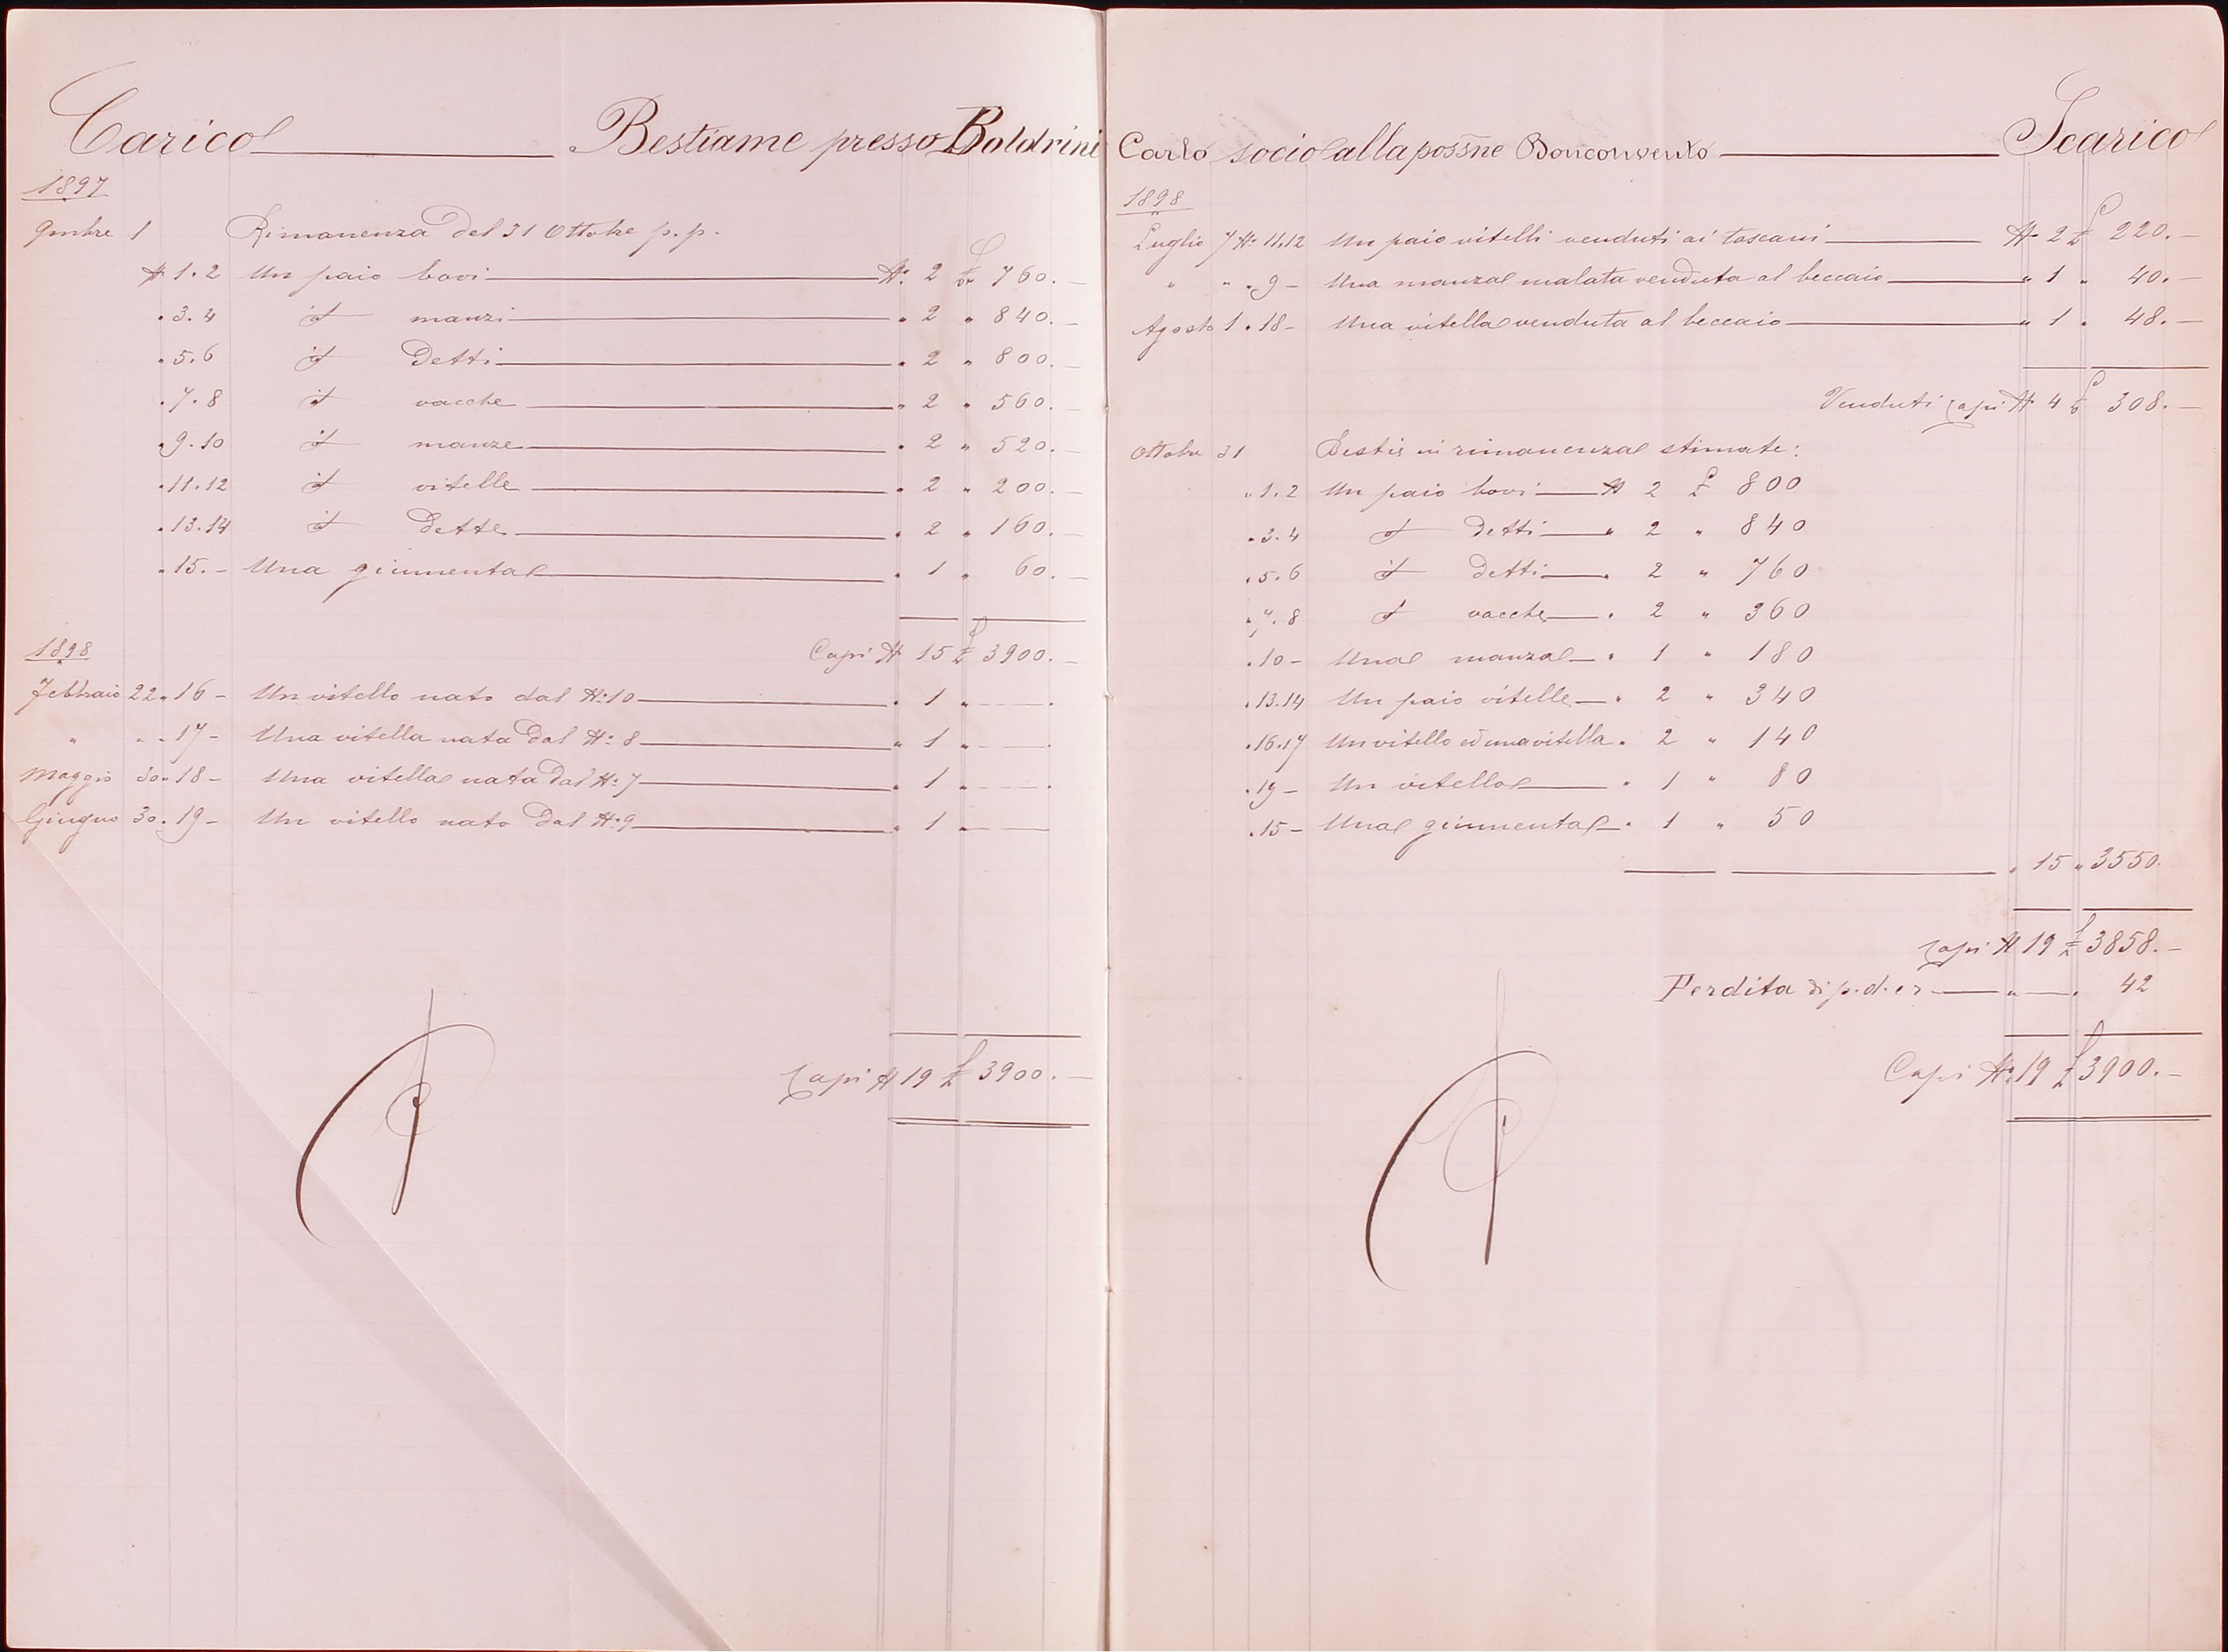 Carico Bestiame presso Boldrini
1897
9mbre 1 Rimanenza del 31 Ottobre p. p.
N. 1. 2 Un paio bovi N. 2 £ 760. —
" 3. 4 id manzi " 2 " 840. —
" 5. 6 id detti " 2 " 800. —
" 7. 8 id vacche " 2 " 560. —
" 9. 10 id manze " 2 " 520. —
" 11. 12 id vitelle " 2 " 200. —
" 13. 14 id dette " 2 " 160. —
" 15. – Una giumenta " 1 " 60. —
Capi N 15 £ 3900. —
1898
Febbraio 22 " 16 – Un vitello nato dal N. 10 " 1 " — — .
" " " 17 – Una vitella nata dal N. 8 " 1 " — — .
Maggio 30 " 18 – Una vitella nata dal N. 7 " 1 " — — .
Giugno 30 " 19 – Un vitello nato dal N. 9 " 1 " — —
Capi N 19 £ 3900. —
Carlo socio alla possne Bonconvento Scarico
1898
Luglio 7 N. 11.12 Un paio vitelli venduti ai toscani N. 2 £ 220. —
" " " 9 – Una manza malata venduta al beccaio " 1 " 40. —
Agosto 1 " 18 – Una vitella venduta al beccaio " 1 " 48. —
Venduti capi N. 4 £ 308. —
Ottobre 31 Bestie in rimanenza stimate:
" 1. 2 Un paio bovi N 2 £ 800
" 3. 4 id detti " 2 " 840
" 5. 6 id detti " 2 " 760
" 7. 8 id vacche " 2 " 360
" 10 – Una manza " 1 " 180
" 13.14 Un paio vitelle " 2 " 340
" 16.17 Un vitello ed una vitella " 2 " 140
" 19 – Un vitello " 1 " 80
" 15 – Una giumenta " 1 " 50
" 15 " 3550.
Capi N 19 £ 3858. —
Perdita di p. d. " — " 42
Capi N. 19 £ 3900. —